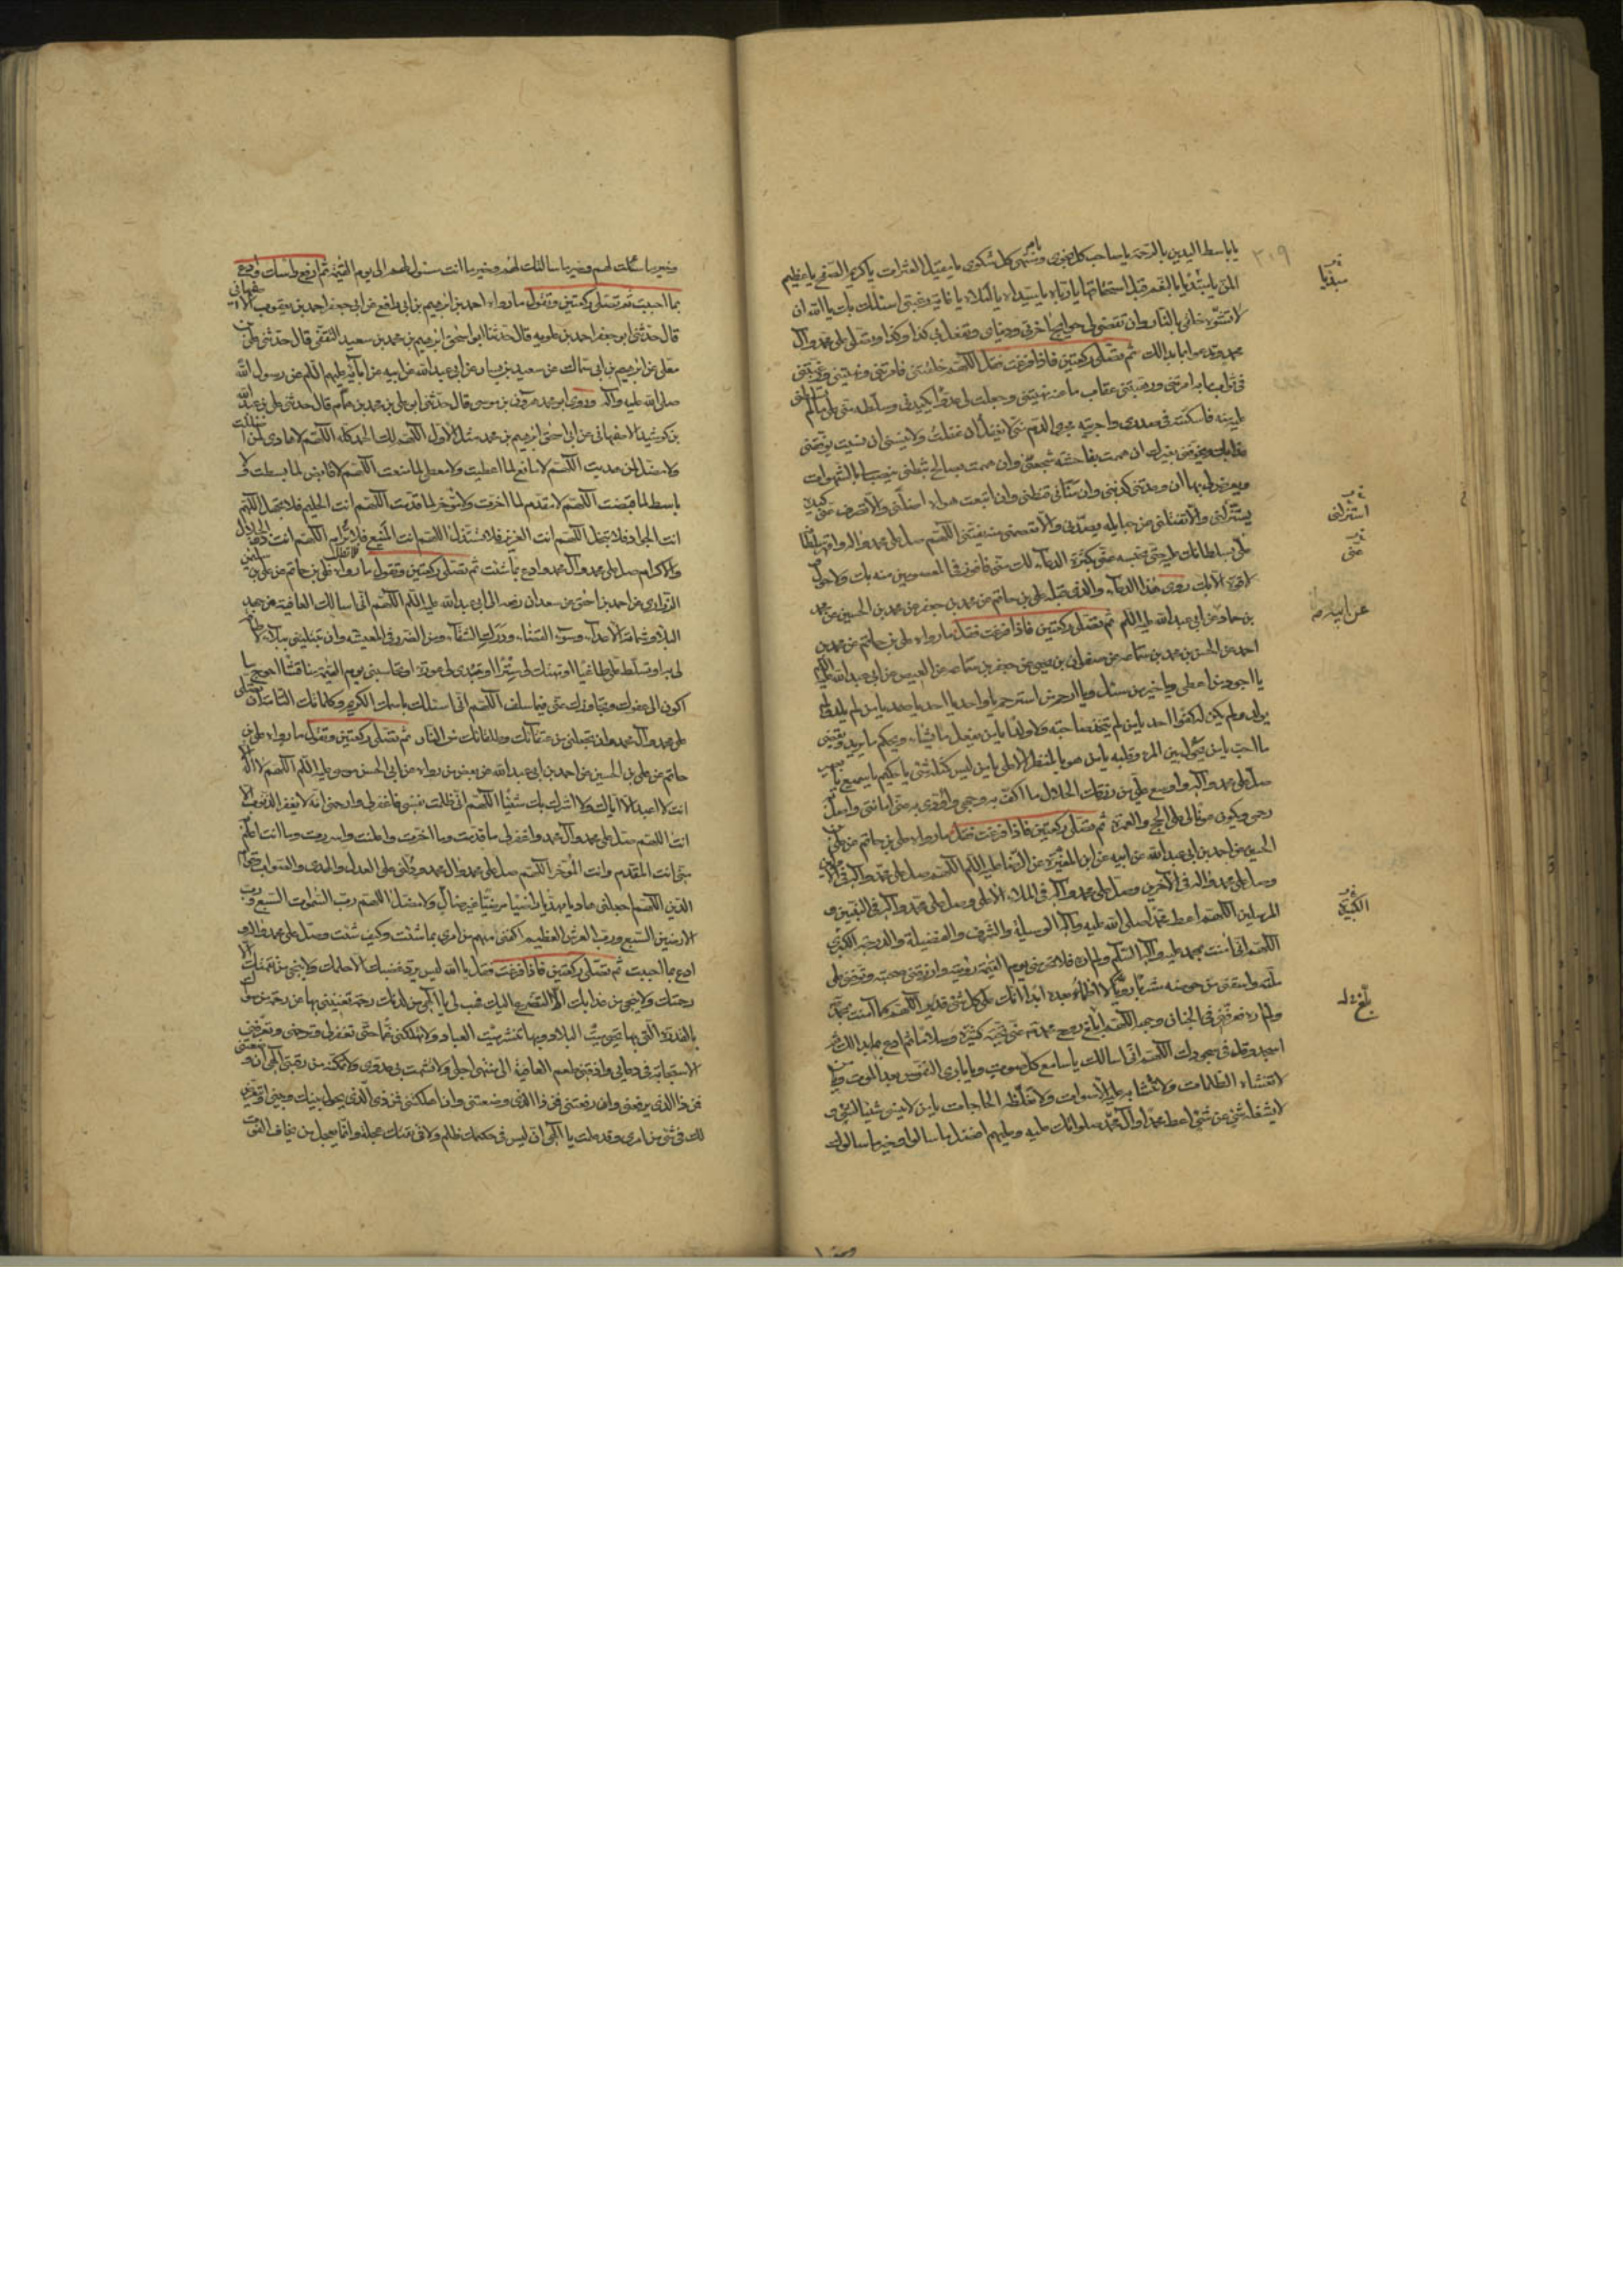 يا باسط اليدين بالرحمة يا صاحب كل نجوى ومنتهى كل شكوى يا مقيل العثرات يا كريم الصفح يا عظيم
المن يا مبتدئا بالنعم قبل استحقاقها يا رباه يا سيداه يا املاه يا غاية رغبتى اسئلك بك يا الله ان
لا تشوه خلقى بالنار وان تقضى لى حوايج اخرتى ودنياى وتفعل بى كذا وكذا وتصلى على محمد وآل
محمد وتدعو بما بدا لك ثم تصلى ركعتين فاذا فرغت فقل اللهم خلقتنى فامرتنى ونهيتنى ورغبتنى
فى ثواب ما به امرتنى ورهبتنى عقاب ما عنه نهيتنى وجعلت لى عدوا يكيدنى وسلطته منى على ما لم
عليه منه فاسكنته فى صدرى واجريته مجرى الدم منى لا يغفل ان غفلت ولا ينسى ان نسيت يؤمننى
عذابك ويخوفنى بغيرك ان هممت بفاحشة شجعنى وان هممت بصالح ثبطنى ينصب لى بالشهوات
ويعرض لى بها ان وعدنى كذبنى وان منانى قنطنى وان اتبعت هواه اضلنى والا تصرف عنى كيده
يستزلنى والا تفلتنى من حبايله يصدنى والا تعصمنى منه يفتنى اللهم صل على محمد واله واقهر سلطانه
على بسلطانك عليه حتى تحبسه عنى بكثرة الدعاء لك منى فافوز فى المعصومين منه بك ولا حول
لا قوة الا بك روى هذا الدعاء والذى قبله على بن حاتم عن محمد بن جعفر عن محمد بن الحسين عن محمد
بن حماد عن ابى عبد الله عليه السلام ثم تصلى ركعتين فاذا فرغت فقل ما رواه على بن حاتم عن محمد بن
احمد عن الحسن بن محمد بن سماعة عن صفوان بن يحيى عن جعفر بن سماعة عن العيص عن ابى عبد الله عليه السلام
يا اجود من اعطى ويا خير من سئل ويا ارحم من استرحم يا واحد يا احد يا صمد يا من لم يلد ولم
يولد ولم يكن له كفوا احد يا من لم يتخذ صاحبة ولا ولدا يا من يفعل ما يشاء ويحكم ما يريد ويقضى
ما احب يا من يحول بين المرء وقلبه يا من هو بالمنظر الاعلى يا من ليس كمثله شئ يا حكيم يا سميع يا بصير
صل على محمد وآله واوسع على من رزقك الحلال ما اكف به وجهى واؤدى به عنى امانتى واصل
رحمى ويكون عونا لى على الحج والعمرة ثم تصلى ركعتين فاذا فرغت فقل ما رواه على بن حاتم عن على بن
الحسين عن احمد بن ابى عبد الله عن ابيه عن ابن المغيرة عن الرضا عليه السلام اللهم صل على محمد وآله فى الاولين
وصل على محمد واله فى الآخرين وصل على محمد وآله فى الملاء الاعلى وصل على محمد وآله فى النبيين و
المرسلين اللهم اعط محمدا صلى الله عليه وآله الوسيلة والشرف والفضيلة والدرجة الكبرى
اللهم انى آمنت بمحمد عليه وآله السلام ولم اره فلا تحرمنى يوم القيمة رؤيته وارزقنى صحبته وتوفنى على
ملته واسقنى من حوضه مشربا رويا لا اظماء بعده ابدا انك على كل شئ قدير اللهم كما آمنت بمحمد
ولم اره فعرفنى فى الجنان وجهه اللهم ابلغ روح محمد عنى تحية كثيرة وسلاما ثم ادع بما بدا لك ثم
اسجد وقل فى سجودك اللهم انى اسالك يا سامع كل صوت ويا بارئ النفوس بعد الموت ويا من
لا تغشاه الظلمات ولا تتشابه عليه الاصوات ولا تغلطه الحاجات يا من لا ينسى شيئا لشئ و
لا يشغله شئ عن شئ اعط محمدا وآل محمد صلواتك عليه وعليهم افضل ما سالوا وخير ما سالوك
٣١٩
مبدئا
استزلنى
عنى
عن ابيه
الكبيرة
بلغ
وخير ما سئلت لهم وخير ما سالتك لهم وخير ما انت مسئول لهم الى يوم القيمة ثم ارفع راسك وادع
بما احببت ثم تصلى ركعتين وتقول ما رواه احمد بن ابرهيم بن ابى رافع عن ابى جعفر احمد بن يعقوب الاصفهانى
قال حدثنى ابو جعفر احمد بن علويه قال حدثنا ابو اسحق ابرهيم بن محمد بن سعيد الثقفى قال حدثنى على بن
معلى عن ابرهيم بن ابى سماك عن سعيد بن يسار عن ابى عبد الله عن ابيه عن آبائه عليهم السلام عن رسول الله
صلى الله عليه وآله وروى ابو محمد هرون بن موسى قال حدثنى ابو على بن محمد بن همام قال حدثنى على بن عبد الله
بن كوشيد الاصفهانى عن ابى اسحق ابرهيم بن محمد مثل الاول اللهم لك الحمد كله اللهم لا هادى لمن اضللت
ولا مضل لمن هديت اللهم لا مانع لما اعطيت ولا معطى لما منعت اللهم لا قابض لما بسطت ولا
باسط لما قبضت اللهم لا مقدم لما اخرت ولا مؤخر لما قدمت اللهم انت الحليم فلا تجهل اللهم
انت الجواد فلا تبخل اللهم انت العزيز فلا تستذل اللهم انت المنيع فلا ترام اللهم انت ذو الجلال
والاكرام صل على محمد وآل محمد وادع بما شئت ثم تصلى ركعتين وتقول ما رواه على بن حاتم عن على بن
عن احمد بن اسحق عن سعدان رفعه الى ابى عبد الله عليه السلام اللهم انى اسالك العافية من جهد
البلاء وشماتة الاعداء وسوء القضاء ودرك الشقاء ومن الضرر فى المعيشة وان تبتلينى ببلاء لا طاقة
لى به او تسلط على طاغيا او تهتك لى سترا او تبدى لى عورة او تحاسبنى يوم القيمة مناقشا احوج ما
اكون الى عفوك وتجاوزك عنى فيما سلف اللهم انى اسئلك باسمك الكريم وكلماتك التامات ان تصلى
على محمد وآل محمد وان تجعلنى من عتقائك وطلقائك من النار ثم تصلى ركعتين وتقول ما رواه على بن
حاتم عن على بن الحسين عن احمد بن ابى عبد الله عن بعض من رواه عن ابى الحسن موسى عليه السلام اللهم لا اله الا
انت لا اعبد الا اياك ولا اشرك بك شيئا اللهم انى ظلمت نفسى فاغفر لى وارحمنى انه لا يغفر الذنوب الا
انت اللهم صل على محمد وآل محمد واغفر لى ما قدمت وما اخرت واعلنت واسررت وما انت اعلم به
منى انت المقدم وانت المؤخر اللهم صل على محمد وال محمد ودلنى على العدل والهدى والصواب وقوام
الدين اللهم اجعلنى هاديا مهديا راضيا مرضيا غير ضال ولا مضل اللهم رب السموات السبع ورب
الارضين السبع ورب العرش العظيم اكفنى المهم من امرى بما شئت وكيف شئت وصل على محمد واله و
ادع بما احببت ثم تصلى ركعتين فاذا فرغت فقل يا الله ليس يرد غضبك الا حلمك ولا ينجى من نقمتك الا
رحمتك ولا ينجى من عذابك الا التضرع اليك فهب لى يا الهى من لدنك رحمة تغنينى بها عن رحمة من سواك
بالقدرة التى بها تحيى ميت البلاد وبها تنشر ميت العباد ولا تهلكنى غما حتى تغفر لى وترحمنى وتعرفنى
الاستجابة فى دعائى واذقنى طعم العافية الى منتهى اجلى ولا تشمت بى عدوى ولا تمكنه من رقبتى الهى ان وضعتنى
فمن ذا الذى يرفعنى وان رفعتنى فمن ذا الذى وضعنى وان اهلكتنى فمن ذا الذى يحول بينك وبينى او يتعرض
لك فى شئ من امرى وقد علمت يا الهى ان ليس فى حكمك ظلم ولا فى نقمتك عجلة وانما يعجل من يخاف الفوت